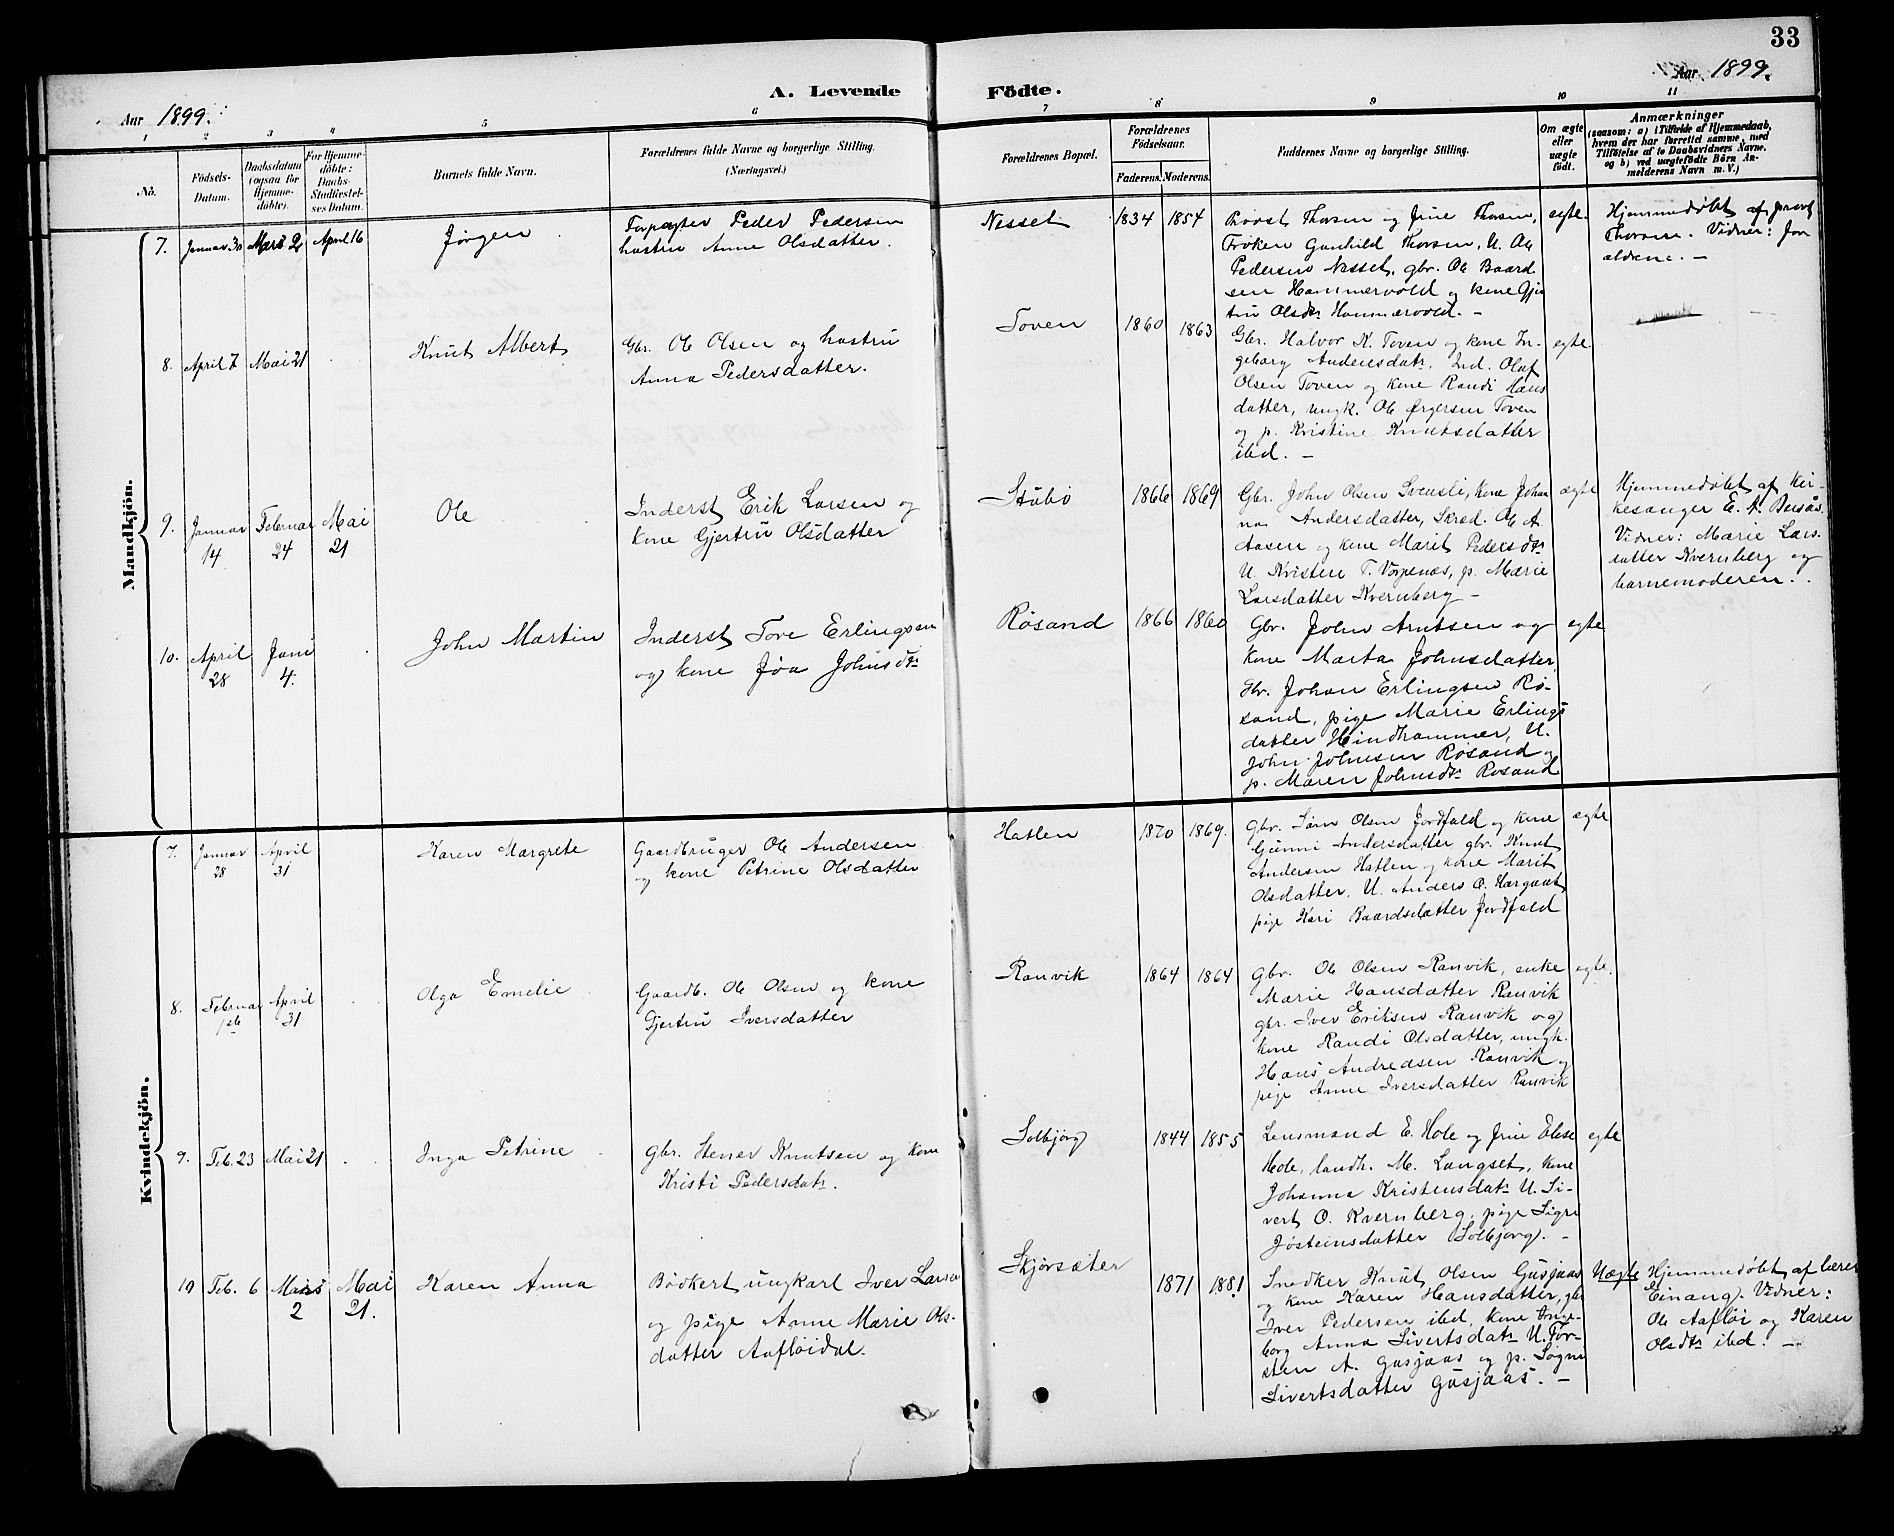 33
A. Levende Födte.
Aar 1899.
Aar 1899.
1 2 3 4 5 6 7 8 9 10 11
No.
Födsels-Datum.
Daabsdatum (ogsaa for Hjemme-döbte).
For Hjemme-döbte: Daabs-Stadfæstel-ses Datum.
Barnets fulde Navn.
Forældrenes fulde Navne og borgerlige Stilling.
(Næringsvei.)
Forældrenes Bopæl.
Forældrenes Födselsaar.
Faderens. Moderens.
Faddernes Navne og borgerlige Stilling.
Om ægte eller uægte födt.
Anmærkninger
(saasom: a) i Tilfælde af Hjemmedaab, hvem der har forrettet samme, med Tilföielse af to Daabsvidners Navne, og b) ved uægtefödte Börn An-melderens Navn m. V.)
Mandkjön.
7. Januar 30 Mars 2 April 16 Jørgen
Forpagter Peder Pedersen
hustru Anne Olsdatter.
Nesset 1834 1854
Provst Thorsen og frue Thorsen,
Frøken Gunhild Thorsen, U. Ole
Pedersen Nesset, gbr. Ole Baard-
sen Hammervold og kone Gjer
tru Olsdtr Hammervold. —
egte.
Hjemmedøbt af provst
Thorsen. Vidner: for
ældrene. —
8. April 7 Mai 21 Knut Albert
Gbr. Ole Olsen og hustru
Anna Pedersdatter.
Toven 1860 1863
Gbr. Halvor K. Toven og kone In-
geborg Andersdatr, Ind. Olaf
Olsen Toven og kone Randi Hans
datter, ungk. Ole Ørgersen Toven
og p. Kristine Knutsdatter
ibd. —
egte.
9. Januar 14 Februar 24 Mai 21 Ole
Inderst Erik Larsen og
kone Gjertru Olsdatter
Stubø 1866 1869
Gbr. John Olsen Svensli, kone Johan
na Andersdatter, Skred. Ole A
Aasen og kone Marit Pedersdtr
U. Kristen T. Vorpenæs, p. Marie
Larsdatter Kvernberg —
ægte
Hjemmedøbt af kir-
kesanger E. A. Bersås.
Vidner: Marie Lars-
datter Kvernberg og
barnemoderen.
10. April 28 Juni 4. John Martin
Inderst Tore Erlingsen
og kone Jøa Johnsdtr
Røsand 1866 1860
Gbr. John Arntsen og
kone Marta Johnsdatter,
Gbr. Johan Erlingsen Rø-
sand, pige Marie Erlings
datter Hindhammer, U.
John Johnsen Røsand og
p. Maren Johnsdtr Røsand
egte
Kvindekjön.
7. Januar 28 April 31 Karen Margrete
Gaardbruger Ole Andersen
og kone Petrine Olsdatter
Hatlen 1870 1869.
Gbr. Søren Olsen Jordfald og kone
Gunni Andersdatter gbr. Knut
Andersen Hatlen og kone Marit
Olsdatter, U. Anders O. Hargaut,
pige Kari Baardsdatter Jordfald
ægte
8. Februar 1ste April 31 Olga Emelie
Gaardb. Ole Olsen og kone
Gjertru Iversdatter
Ranvik 1864 1864
Gbr. Ole Olsen Ranvik, enke
Marie Hansdatter Ranvik
gbr. Iver Eriksen Ranvik og
kone Randi Olsdatter, ungk.
Hans Andreasen Ranvik og
pige Anne Iversdatter Ranvik
egte.
9. Feb. 23 Mai 21 Inga Petrine
Gbr. Stener Knutsen og kone
Kristi Pedersdatr.
Solbjørg 1844 1855
Lensmand E. Hole og frue Elise
Hole, landh. M. Langset, kone
Johanna Kristensdatr U. Si-
vert O. Kvernberg, pige Sigri
Jøsteinsdatter Solbjørg. —
egte
10 Feb. 6 Mars 2 Mai 21. Karen Anna
Bødkert ungkarl Iver Larsen
og pige Anne Marie Ols-
datter Aafløidal.
Skjørsæter 1871 1881
Snedker Knut Olsen Gusjaas
og kone Karen Hansdatter, gbr
Iver Pedersen ibd, kone Inge-
borg Anna Sivertsdatr U. Tor-
sten A. Gusjaas og p. Søgni
Sivertsdatter Gusjaas. —
Uægte
Hjemmedøbt af lærer
Einang. Vidner:
Ole Aafløi og Karen
Olsdtr ibd. —